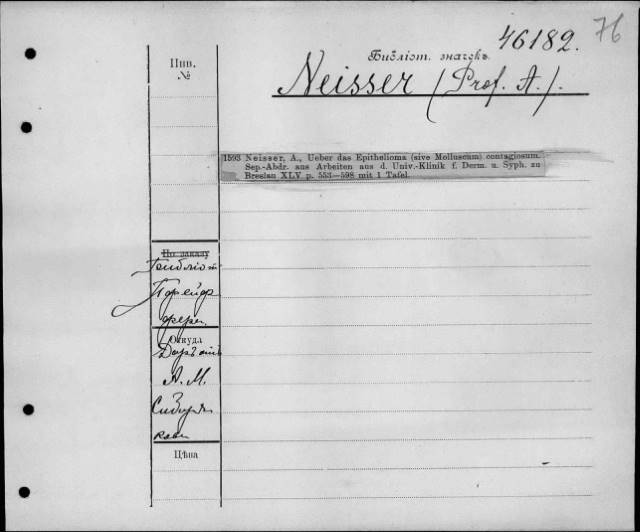 46182. 76
Библіот. значекъ.
Инв.
№
Neisser (Prof. A.).
1593 Neisser, A., Ueber das Epithelioma (sive Molluscum) contagiosum.
Sep.-Abdr. aus Arbeiten aus d. Univ.-Klinik f. Derm. u. Syph. zu
Breslau XLV. p. 553—598 mit 1 Tafel.
По заказу
Библіот
Пфейф
фера.
Откуда
Даръ отъ
А. М.
Сибиря
кова
Цѣна